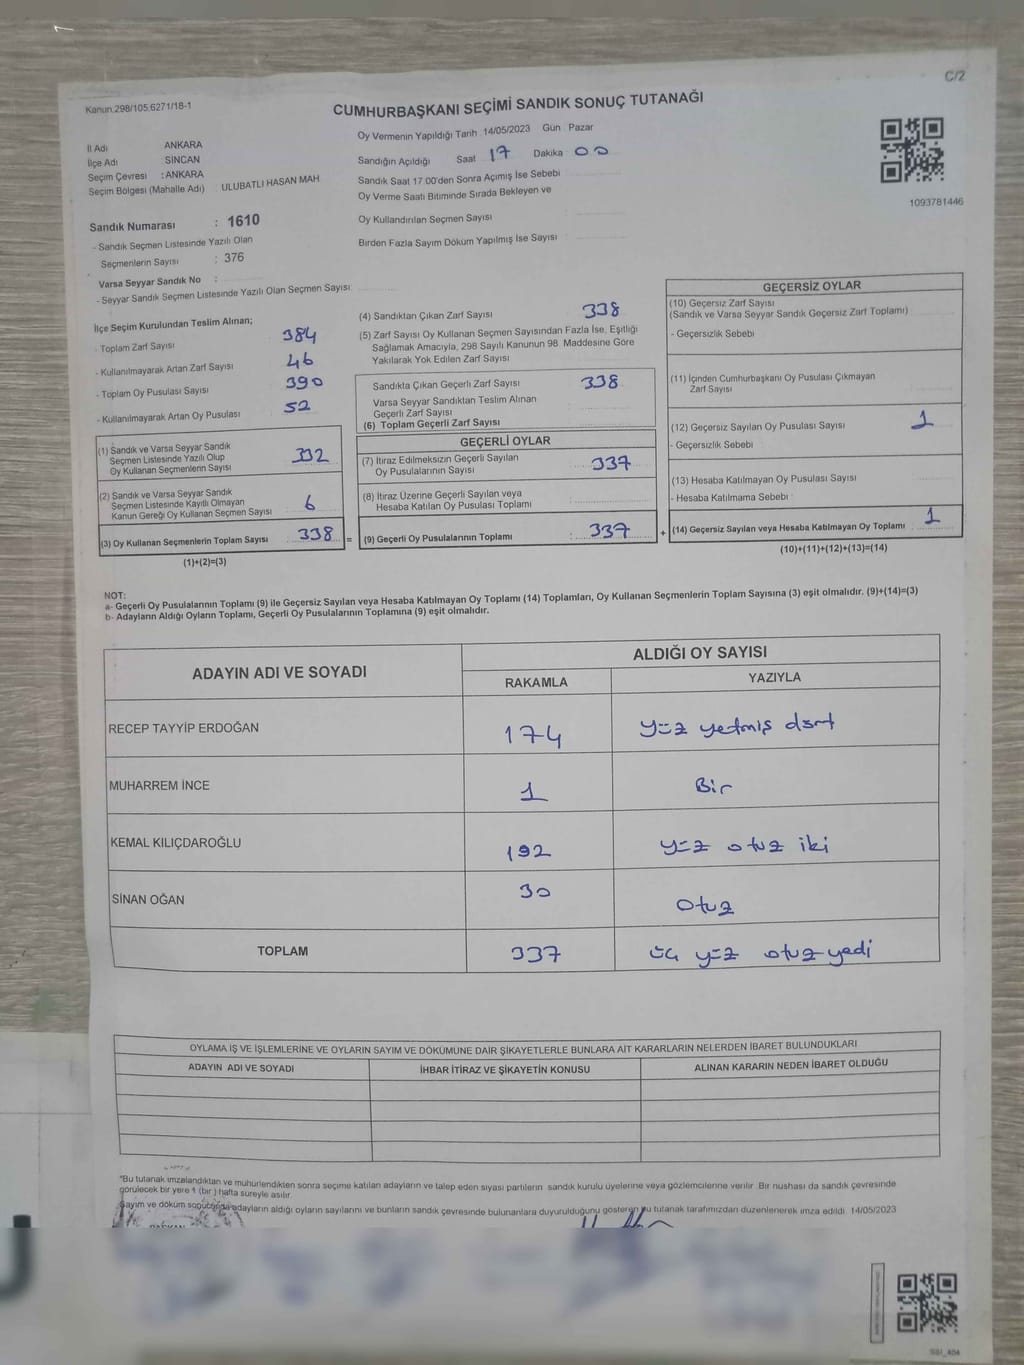 C/2
Kanun:298/105,6271/18-1
CUMHURBAŞKANI SEÇİMİ SANDIK SONUÇ TUTANAĞI
İl Adı ANKARA
İlçe Adı SİNCAN
Seçim Çevresi : ANKARA
Seçim Bölgesi (Mahalle Adı) : ULUBATLI HASAN MAH
Oy Vermenin Yapıldığı Tarih 14/05/2023 Gün Pazar
Sandığın Açıldığı Saat 17 Dakika 00
Sandık Saat 17:00'den Sonra Açımış İse Sebebi
Oy Verme Saati Bitiminde Sırada Bekleyen ve
Oy Kullandırılan Seçmen Sayısı
Birden Fazla Sayım Döküm Yapılmış İse Sayısı
1093781446
Sandık Numarası : 1610
- Sandık Seçmen Listesinde Yazılı Olan
Seçmenlerin Sayısı : 376
Varsa Seyyar Sandık No :
- Seyyar Sandık Seçmen Listesinde Yazılı Olan Seçmen Sayısı:
İlçe Seçim Kurulundan Teslim Alınan;
- Toplam Zarf Sayısı 384
- Kullanılmayarak Artan Zarf Sayısı 46
- Toplam Oy Pusulası Sayısı 390
- Kullanılmayarak Artan Oy Pusulası 52
(1) Sandık ve Varsa Seyyar Sandık
Seçmen Listesinde Yazılı Olup
Oy Kullanan Seçmenlerin Sayısı 332
(2) Sandık ve Varsa Seyyar Sandık
Seçmen Listesinde Kayıtlı Olmayan
Kanun Gereği Oy Kullanan Seçmen Sayısı 6
(3) Oy Kullanan Seçmenlerin Toplam Sayısı 338 =
(1)+(2)=(3)
(4) Sandıktan Çıkan Zarf Sayısı 338
(5) Zarf Sayısı Oy Kullanan Seçmen Sayısından Fazla İse, Eşitliği
Sağlamak Amacıyla, 298 Sayılı Kanunun 98. Maddesine Göre
Yakılarak Yok Edilen Zarf Sayısı
Sandıkta Çıkan Geçerli Zarf Sayısı 338
Varsa Seyyar Sandıktan Teslim Alınan
Geçerli Zarf Sayısı
(6) Toplam Geçerli Zarf Sayısı
GEÇERLİ OYLAR
(7) İtiraz Edilmeksizin Geçerli Sayılan
Oy Pusulalarının Sayısı 337
(8) İtiraz Üzerine Geçerli Sayılan veya
Hesaba Katılan Oy Pusulası Toplamı
(9) Geçerli Oy Pusulalarının Toplamı : 337 +
GEÇERSİZ OYLAR
(10) Geçersiz Zarf Sayısı
(Sandık ve Varsa Seyyar Sandık Geçersiz Zarf Toplamı)
- Geçersizlik Sebebi
(11) İçinden Cumhurbaşkanı Oy Pusulası Çıkmayan
Zarf Sayısı
(12) Geçersiz Sayılan Oy Pusulası Sayısı 1
- Geçersizlik Sebebi
(13) Hesaba Katılmayan Oy Pusulası Sayısı
- Hesaba Katılmama Sebebi
(14) Geçersiz Sayılan veya Hesaba Katılmayan Oy Toplamı 1
(10)+(11)+(12)+(13)=(14)
NOT:
a- Geçerli Oy Pusulalarının Toplamı (9) ile Geçersiz Sayılan veya Hesaba Katılmayan Oy Toplamı (14) Toplamları, Oy Kullanan Seçmenlerin Toplam Sayısına (3) eşit olmalıdır. (9)+(14)=(3)
b- Adayların Aldığı Oyların Toplamı, Geçerli Oy Pusulalarının Toplamına (9) eşit olmalıdır.
ADAYIN ADI VE SOYADI ALDIĞI OY SAYISI
RAKAMLA YAZIYLA
RECEP TAYYİP ERDOĞAN 174 yüz yetmiş dört
MUHARREM İNCE 1 Bir
KEMAL KILIÇDAROĞLU 132 yüz otuz iki
SİNAN OĞAN 30 otuz
TOPLAM 337 üç yüz otuz yedi
OYLAMA İŞ VE İŞLEMLERİNE VE OYLARIN SAYIM VE DÖKÜMÜNE DAİR ŞİKAYETLERLE BUNLARA AİT KARARLARIN NELERDEN İBARET BULUNDUKLARI
ADAYIN ADI VE SOYADI İHBAR İTİRAZ VE ŞİKAYETİN KONUSU ALINAN KARARIN NEDEN İBARET OLDUĞU
"Bu tutanak imzalandıktan ve mühürlendikten sonra seçime katılan adayların ve talep eden siyasi partilerin sandık kurulu üyelerine veya gözlemcilerine verilir. Bir nushası da sandık çevresinde
görülecek bir yere 1 (bir) hafta süreyle asılır.
Sayım ve döküm sonucunda adayların aldığı oyların sayılarını ve bunların sandık çevresinde bulunanlara duyurulduğunu gösteren bu tutanak tarafımızdan düzenlenerek imza edildi. 14/05/2023
BAŞKAN